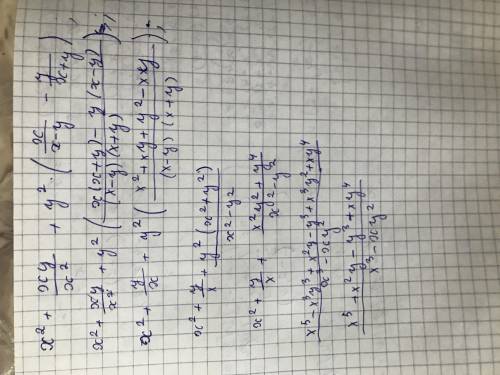 x² + xy/x² + y² · (x/x-y - y/x+y);
x² + xy/x² + y² (x(x+y) - y(x-y)/(x-y)(x+y));
x² + y/x + y² (x² + xy + y² - xy/(x-y)(x+y));
x² + y/x + y²(x²+y²)/x²-y²
x² + y/x + x²y² + y⁴/x²-y²
x⁵ - x³y³ + x²y - y³ + x³y² + xy⁴/x³ - xy²
x⁵ + x²y - y³ + xy⁴/x³ - xy²